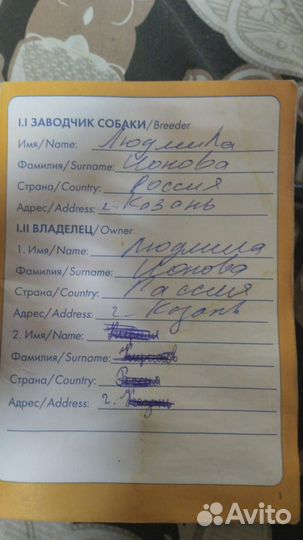 I.I ЗАВОДЧИК СОБАКИ/Breeder
Имя/Name: Людмила
Фамилия/Surname: Ионова
Страна/Country: Россия
Адрес/Address: г. Козань
I.II ВЛАДЕЛЕЦ/Owner
1. Имя/Name: Людмила
Фамилия/Surname: Ионова
Страна/Country: Рассия
Адрес/Address: г. Козань
2. Имя/Name:
Фамилия/Surname:
Страна/Country: Россия
Адрес/Address: г. Казань
1
Avito